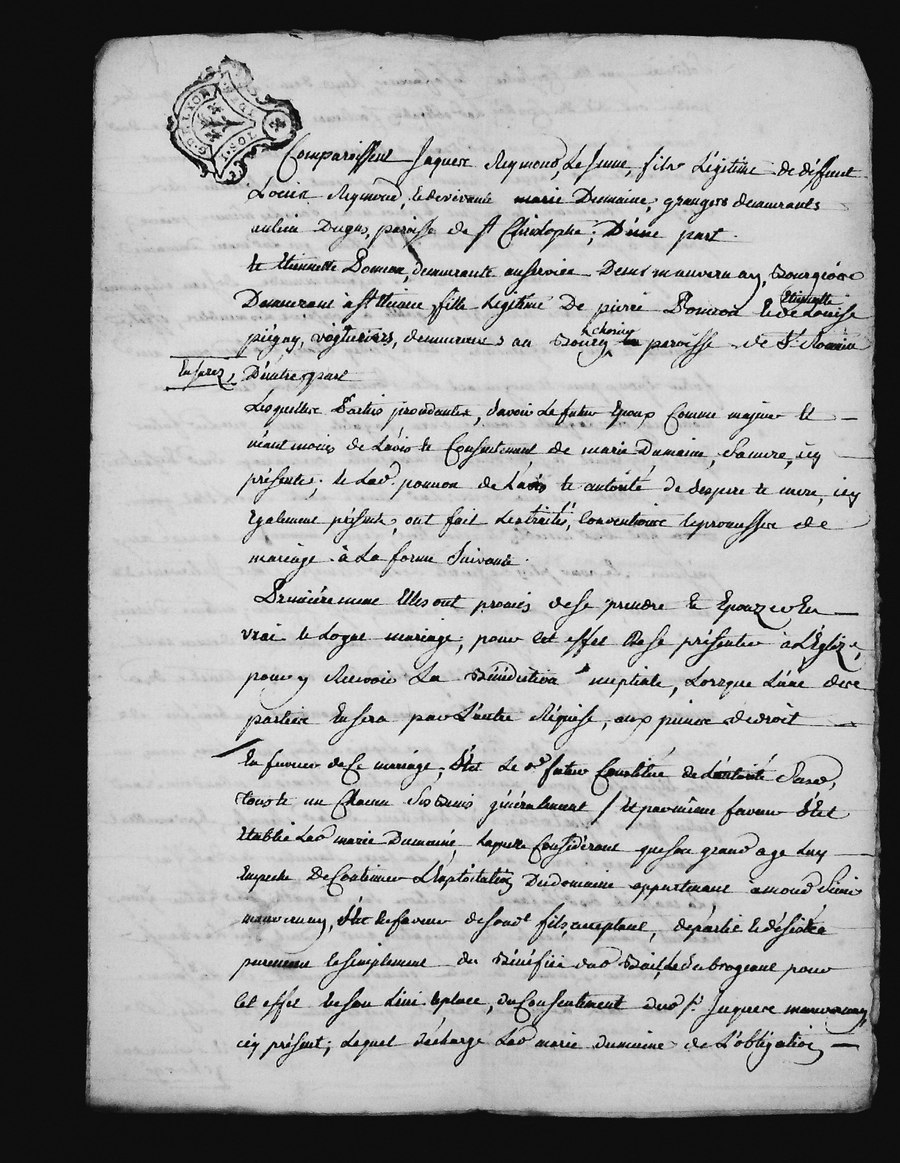 Comparoissent Jaques Reymond, Le Jeune, fils Légitime de déffunt
Louis Reymond, et de vivante marie Dumaine, grangers demeurants
au lieu Dugas, paroisse de St Christophe, D'une part.
Et Etiennette Ponson, demeurante au service De mauvernay, Bourgeois
Demeurant à St fille Légitime De pierre Ponson Et de Etiennette Louise
vigneronts, demeurants au Bourg paroisse de St Romain
D'autre part
Lesquelles Parties procedantes, sçavoir Le futur Epoux Comme majeur Et
néant moins de L'avis Et Consentement de marie Dumaine, sa mere, icy
présente; Et Lad. ponson de L'avis Et autorité de ses pere Et mere, icy
Egalement présents, ont fait Les traités, Conventions Et promesses de
mariage à La forme Suivante.
Premièrement Elles ont promis de se prendre Et Epouzer En
vrai Et Logal mariage, pour cet effet De se présenter à L'Eglize,
pour y Recevoir La Bénédiction nuptiale, Lorsque L'une des
parties En sera par L'autre Réquise, aux peines de droit
En faveur de Ce mariage, s'Est Le d. futur Constitué de L'autorité
Tous Et un Chacun Ses Biens généralement / Et par même faveur s'Est
Etablie Lad. marie Dumaine Laquelle Considérant que son grand age Luy
Empeche De Continuer L'Exploitation Du domaine appartenant à
mauvernay, s'Est En faveur de son d. fils, acceptant, départie Et désistée
purement Et simplement du Bénéfice dud. Bail, Le subrogeant pour
Cet effet En son Lieu Et place, du Consentement dud. Sr. Jaques mauvernay,
icy présent; Lequel décharge Lad. marie dumaine de L'obligation